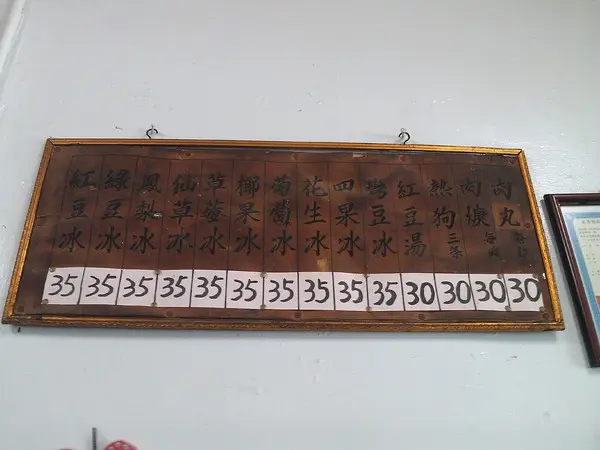 肉丸 30
肉焿 30
熱狗 三条 30
紅豆湯 30
豆冰 35
四果冰 35
花生冰 35
葡萄冰 35
椰果冰 35
冰 35
仙草冰 35
鳳梨冰 35
綠豆冰 35
紅豆冰 35